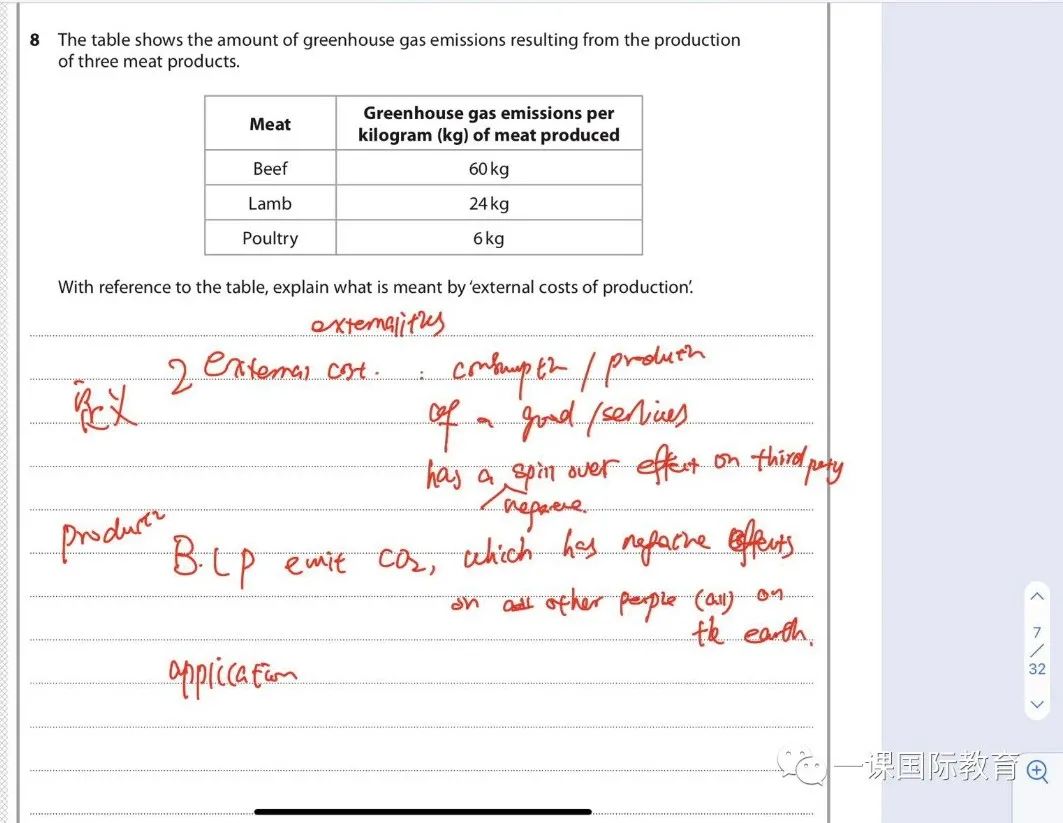 8 The table shows the amount of greenhouse gas emissions resulting from the production
of three meat products.
Meat Greenhouse gas emissions per
kilogram (kg) of meat produced
Beef 60 kg
Lamb 24 kg
Poultry 6 kg
With reference to the table, explain what is meant by 'external costs of production'.
externalities
2 External cost : consumptn / productn
定义 of a good / services
has a spill over effect on third party
negative.
product
B. L P emit CO2, which has negative effects
on other people (all) on
the earth.
application
7
/
32
一课国际教育